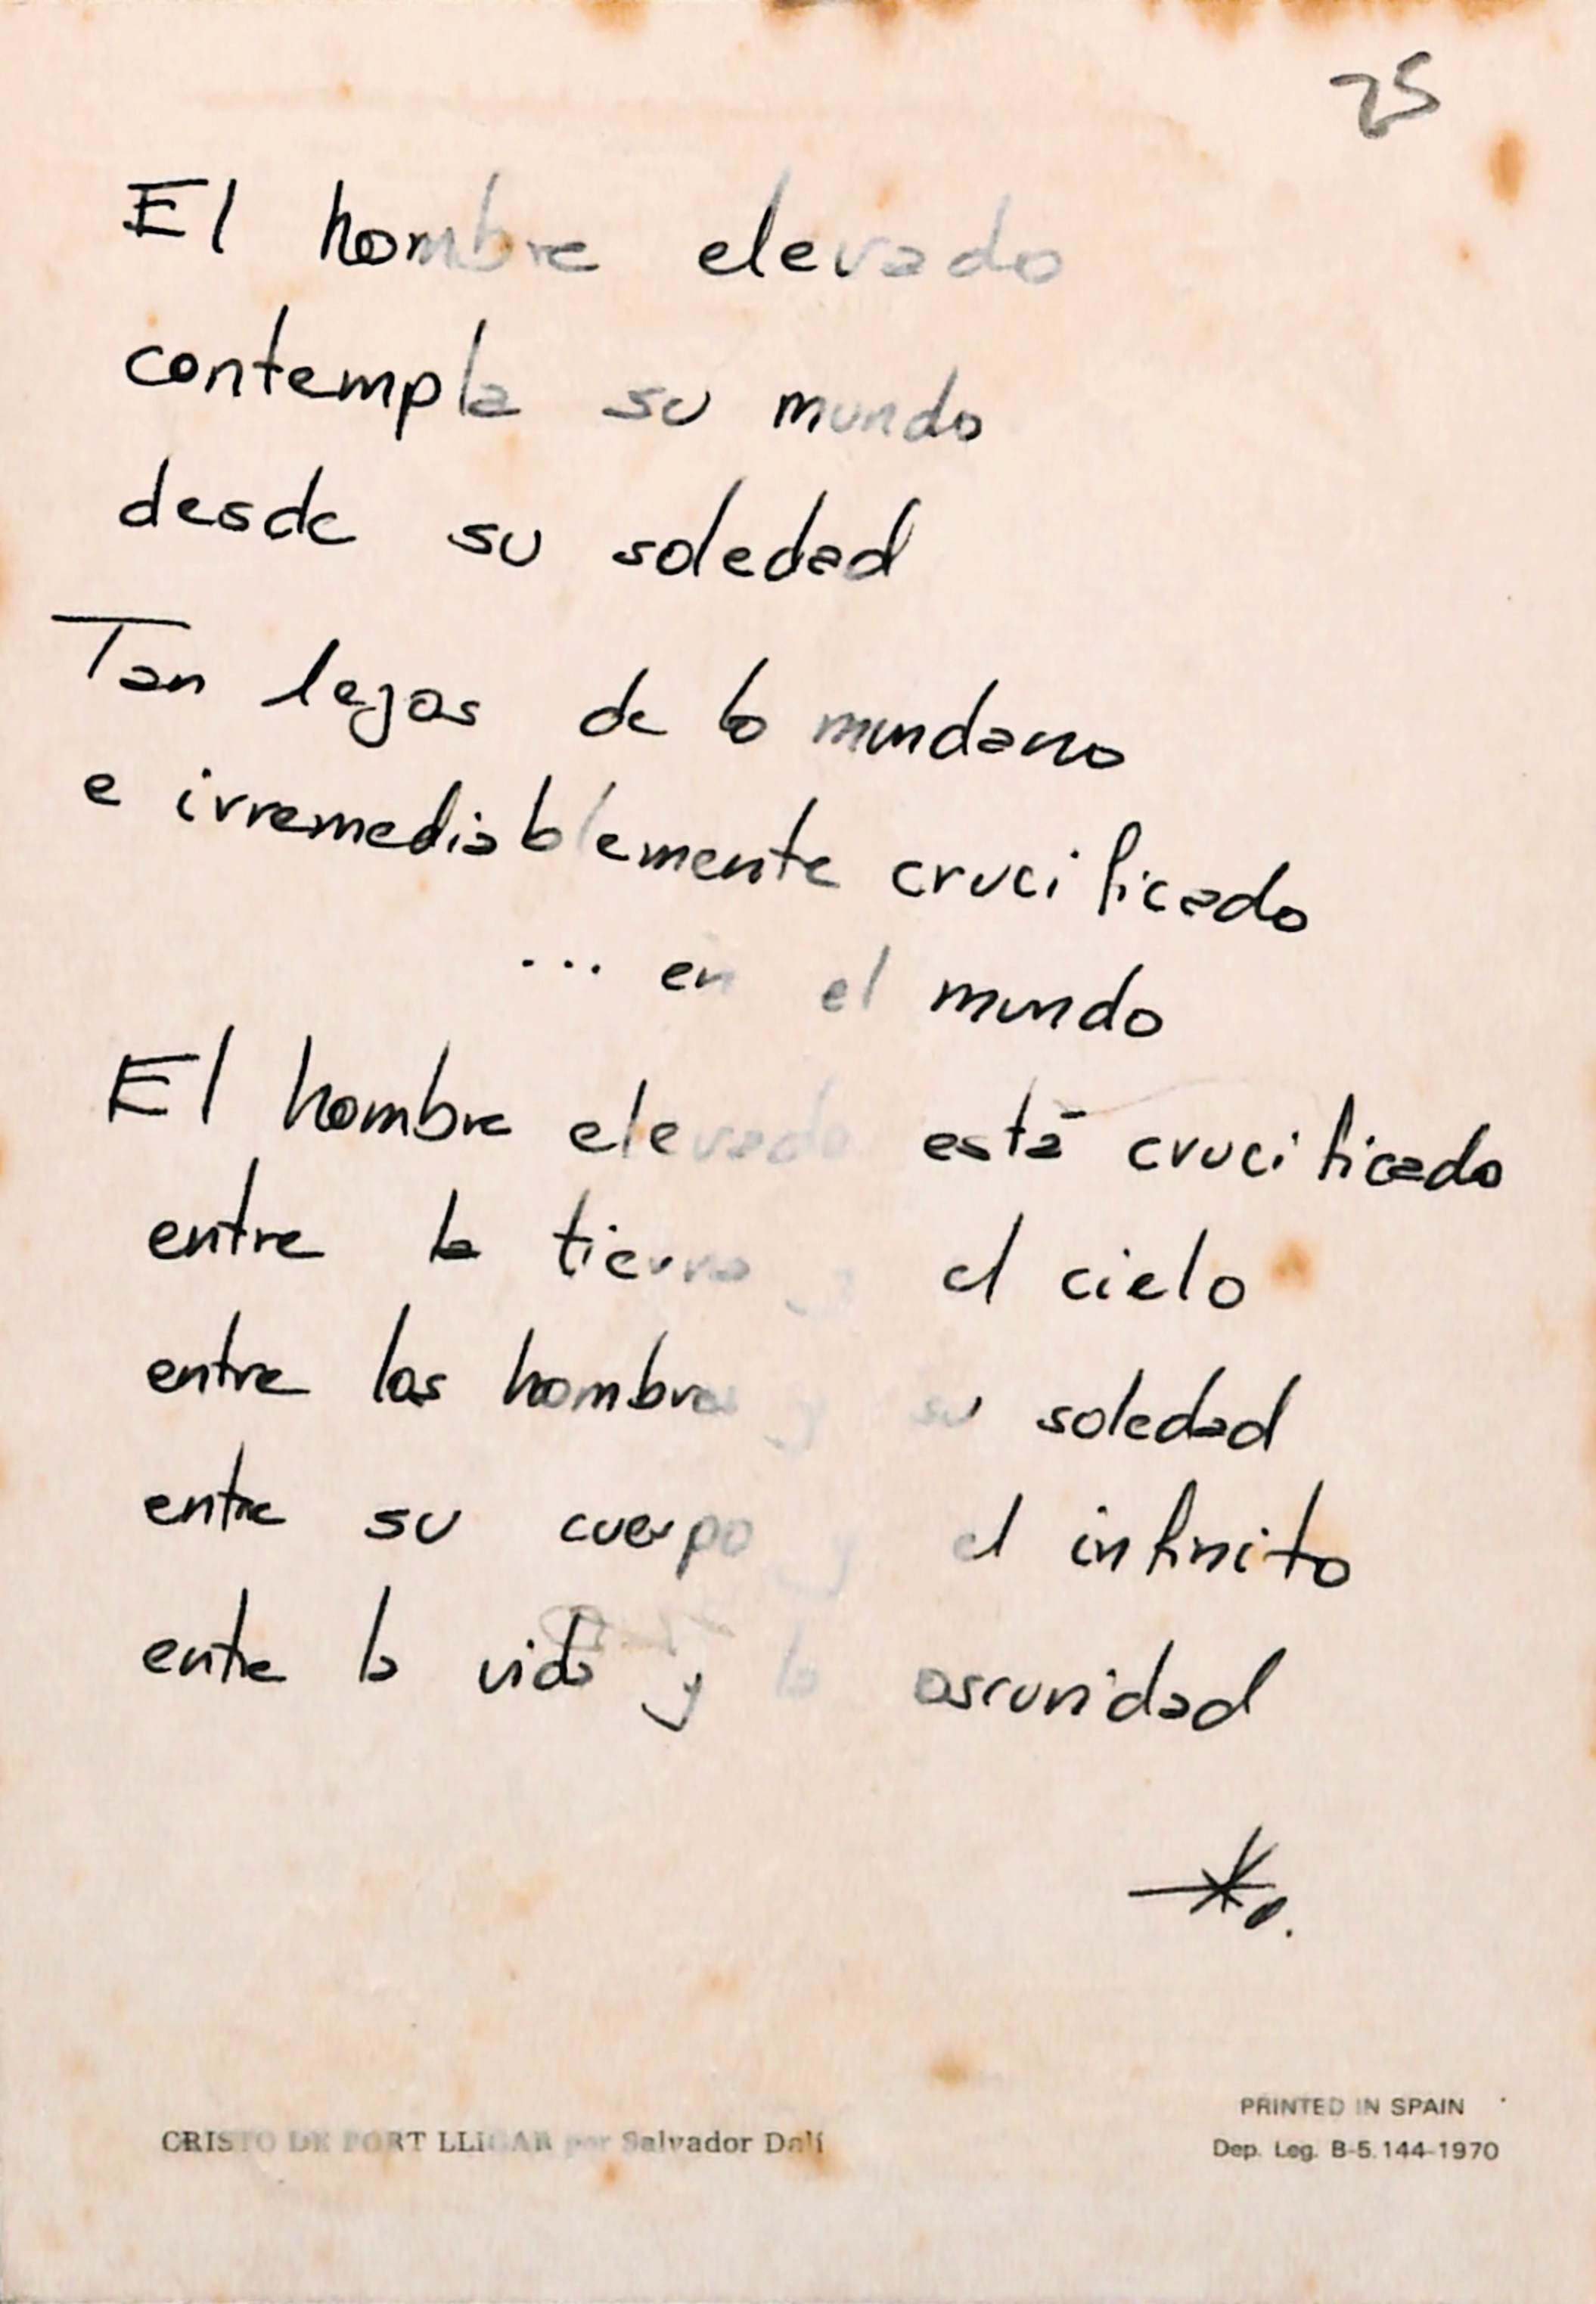 25
El hombre elevado
contempla su mundo
desde su soledad
Tan lejos de lo mundano
e irremediablemente crucificado
... en el mundo
El hombre elevado está crucificado
entre la tierra y el cielo
entre los hombres y su soledad
entre su cuerpo y el infinito
entre la vida y la oscuridad
CRISTO DE PORT LLIGAR por Salvador Dalí
PRINTED IN SPAIN
Dep. Leg. B-5.144-1970